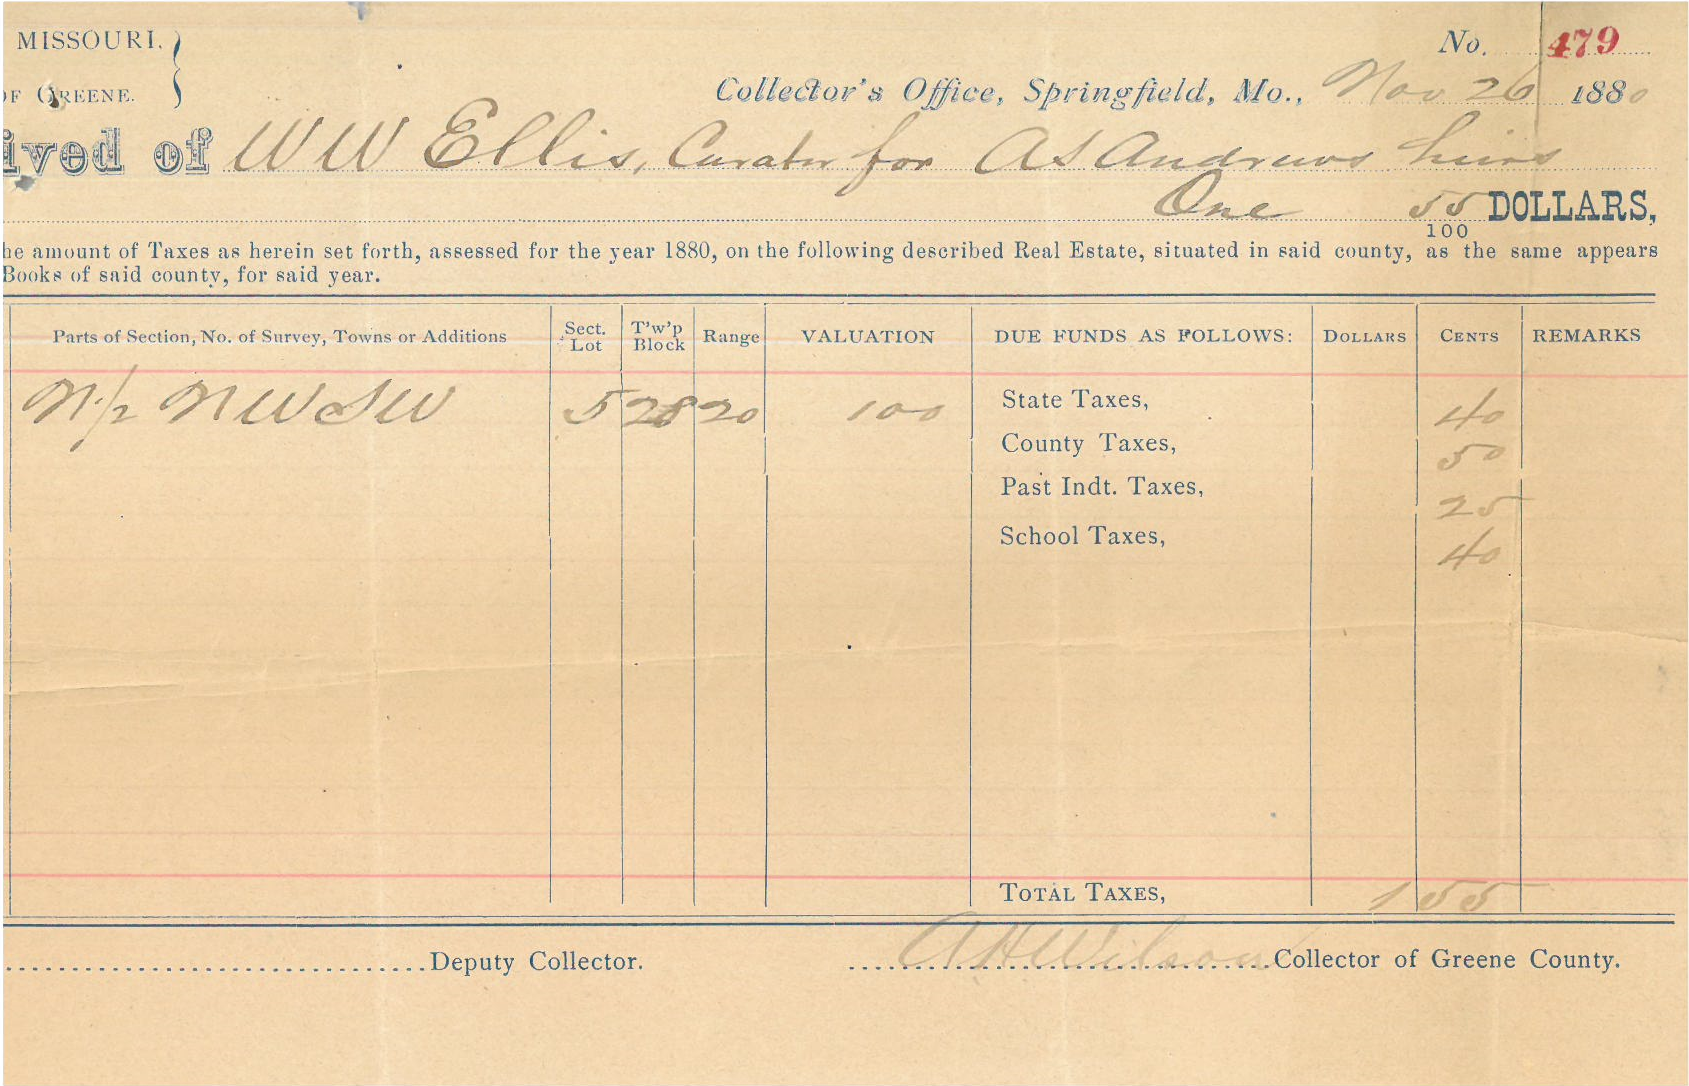 MISSOURI. }
No. 479
OF GREENE.
Collector's Office, Springfield, Mo., Nov 26 1880
ived of W W Ellis, Curator for A S Andrews heirs
One 55/100 DOLLARS,
he amount of Taxes as herein set forth, assessed for the year 1880, on the following described Real Estate, situated in said county, as the same appears
Books of said county, for said year.
Parts of Section, No. of Survey, Towns or Additions Sect. Lot T'w'p Block Range VALUATION DUE FUNDS AS FOLLOWS: DOLLARS CENTS REMARKS
N 1/2 N W S W 5 28 20 100 State Taxes, 40
County Taxes, 50
Past Indt. Taxes, 25
School Taxes, 40
TOTAL TAXES, 1 55
Deputy Collector. A H Wilson Collector of Greene County.